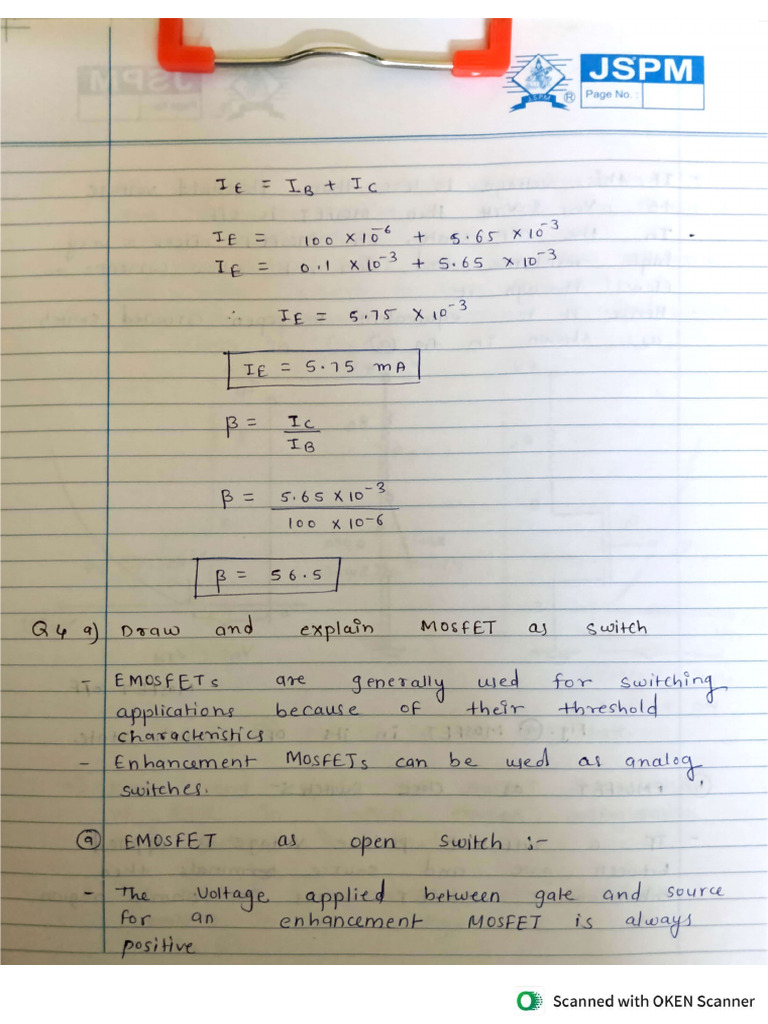 JSPM
Page No. :
JSPM
I_E = I_B + I_C
I_E = 100 × 10^-6 + 5.65 × 10^-3
I_E = 0.1 × 10^-3 + 5.65 × 10^-3
∴ I_E = 5.75 × 10^-3
I_E = 5.75 mA
β = I_C / I_B
β = 5.65 × 10^-3 / 100 × 10^-6
β = 56.5
Q4 a) Draw and explain MOSFET as switch
- EMOSFETs are generally used for switching
applications because of their threshold
characteristics
- Enhancement MOSFETs can be used as analog
switches.
ⓐ EMOSFET as open switch :-
- The voltage applied between gate and source
for an enhancement MOSFET is always
positive
Scanned with OKEN Scanner